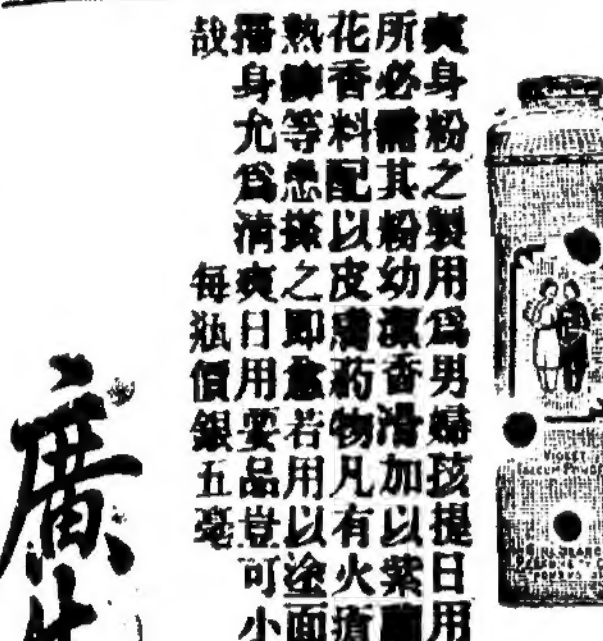 爽身粉之製用爲男婦孩提日用
所必需其粉幼潔香滑加以紫蘭
花香料配以皮膚葯物凡有火
熱痱等患搽之即愈若用以塗面
身允爲清爽日用要品豈可小
哉 每瓶價銀五毫
廣生
VIOLET
TALCUM POWDER